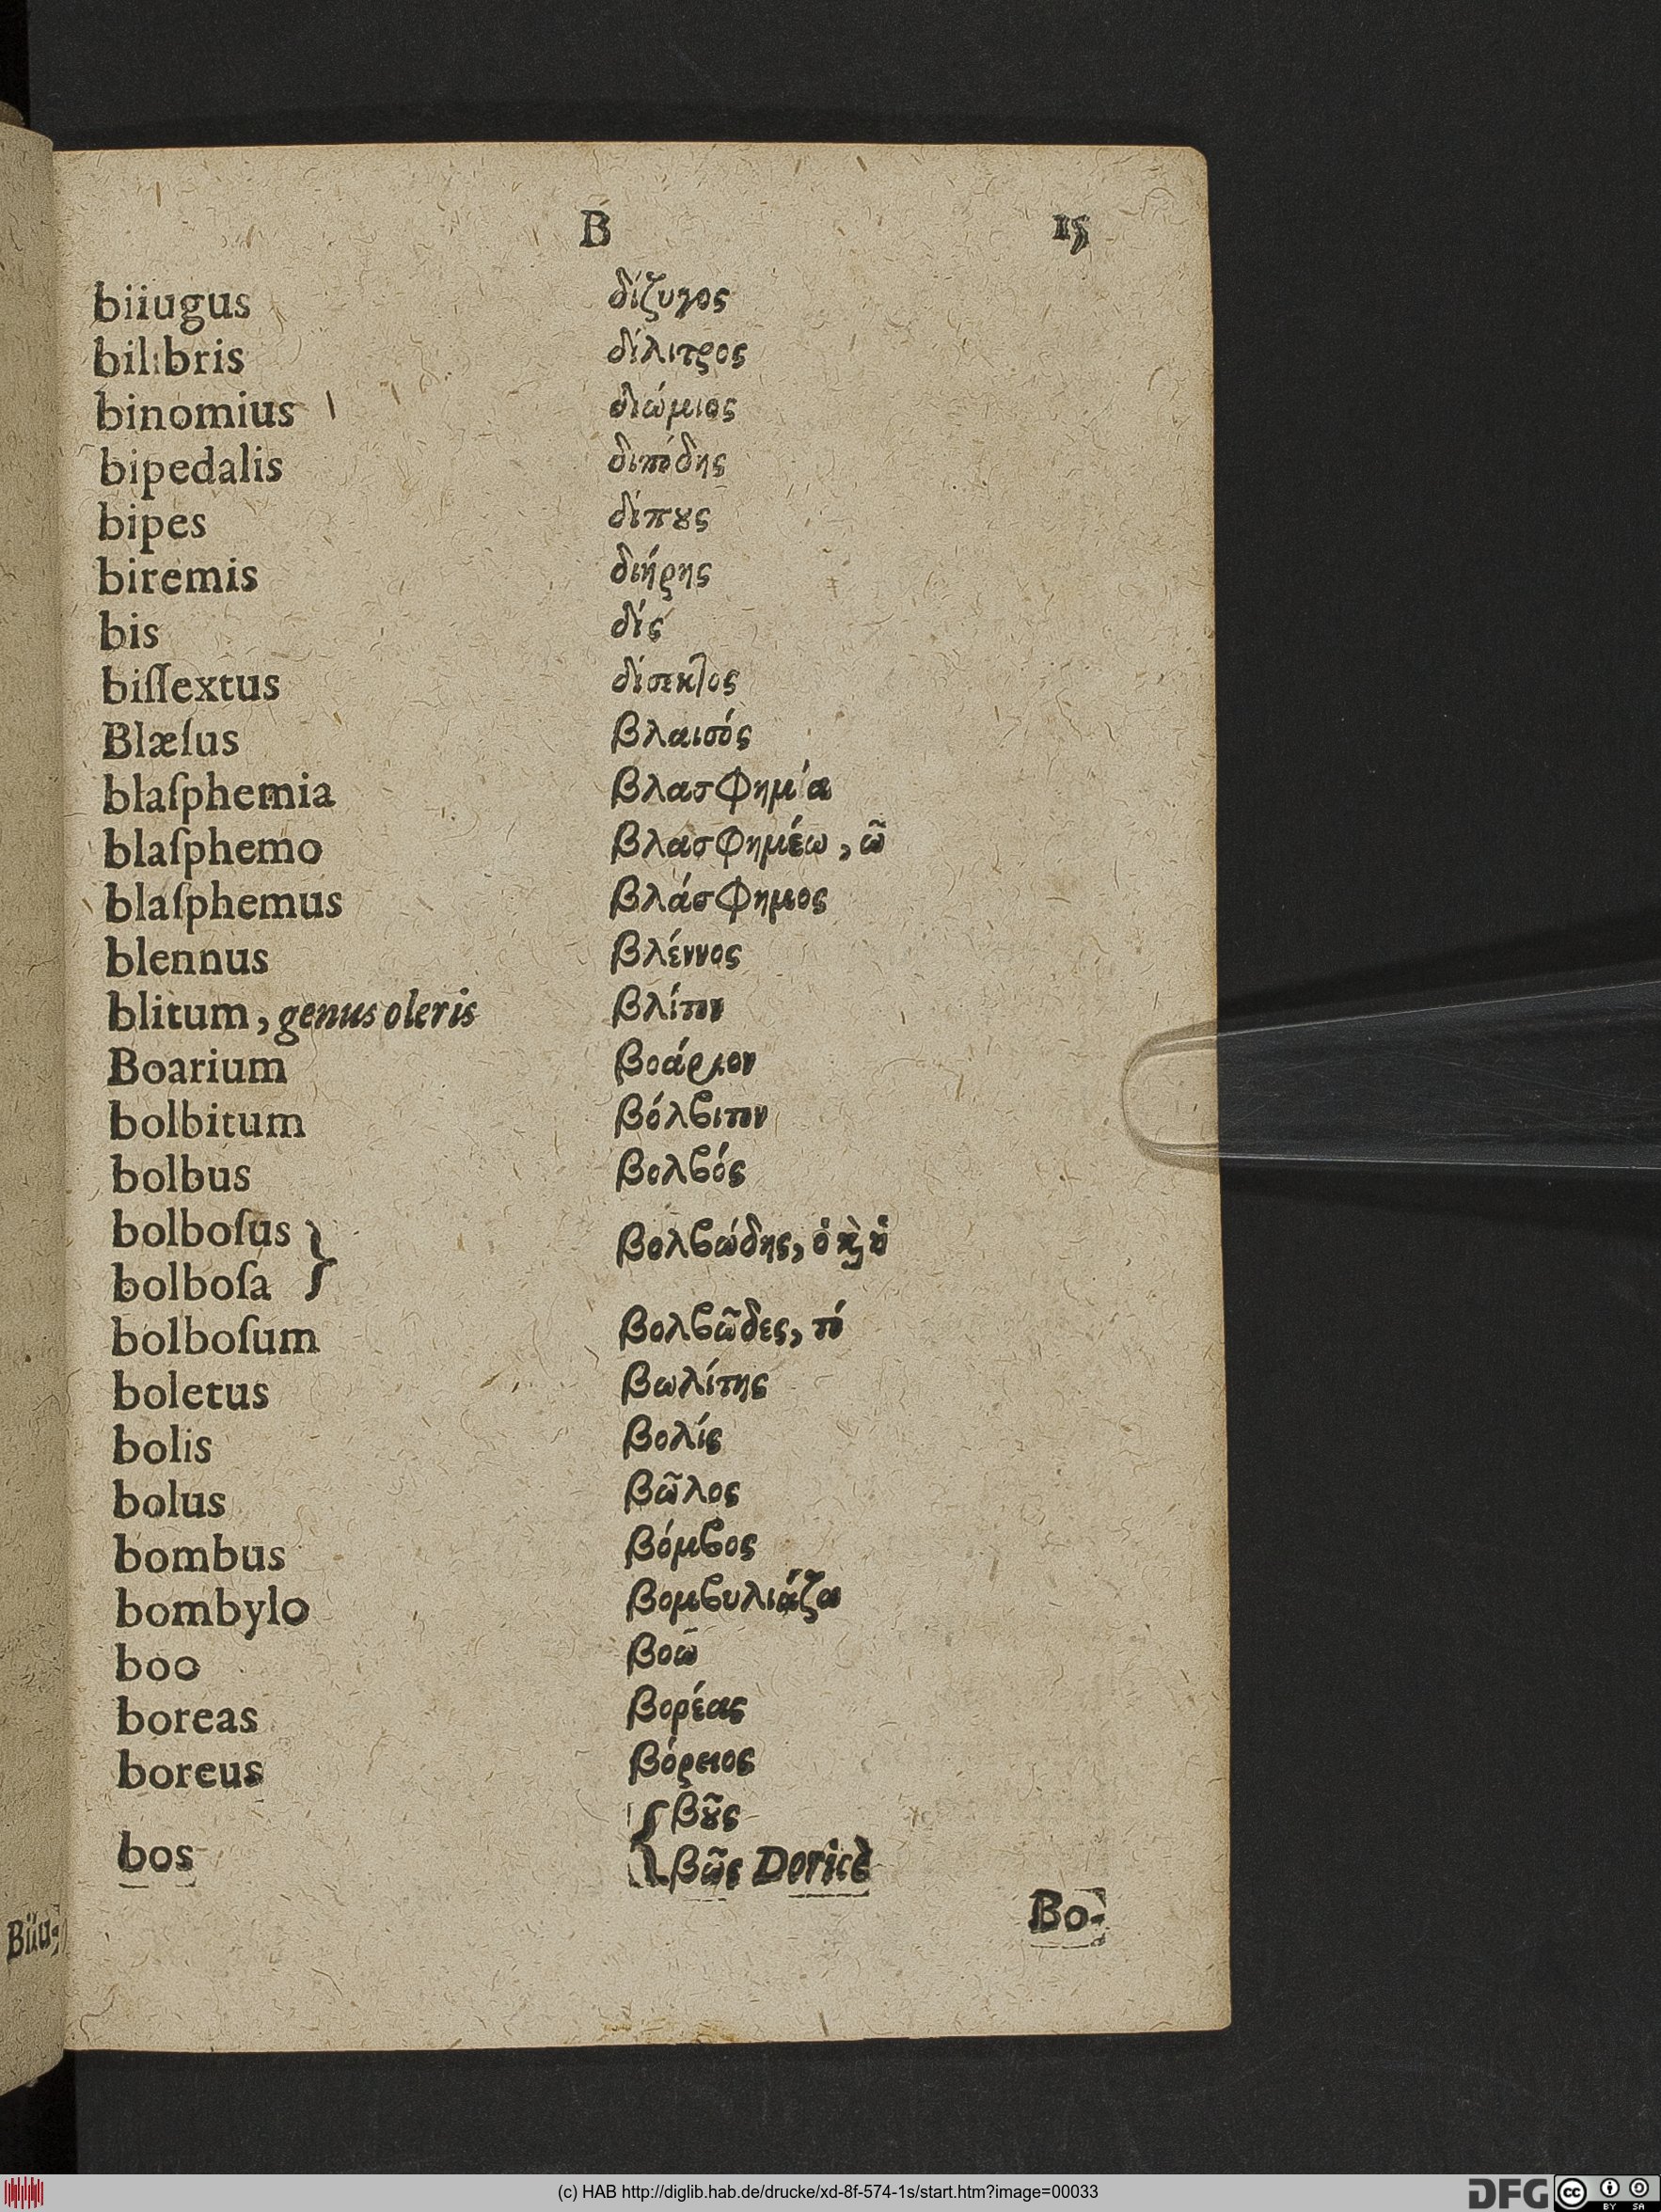 B 15
biiugus δίζυγος
bilibris δίλιτρος
binomius διώμιος
bipedalis διπόδης
bipes δίπȣς
biremis διήρης
bis δίς
biſſextus δίσεκτος
Blæſus βλαισός
blaſphemia βλασφημία
blaſphemo βλασφημέω, ῶ
blaſphemus βλάσφημος
blennus βλέννος
blitum, genus oleris βλίτον
Boarium βοάριον
bolbitum βόλϐιτον
bolbus βολϐός
boloſus
bolboſa } βολϐώδης, ὁ ϗ̀ ἡ
bolboſum βολϐῶδες, τό
boletus βωλίτης
bolis βολίς
bolus βῶλος
bombus βόμϐος
bombylo βομϐυλιάζω
boo βοῶ
boreas βορέας
boreus βόρειος
bos { βȣ͂ς
βῶς Doricè
Bo-
Biiu-
(c) HAB http://diglib.hab.de/drucke/xd-8f-574-1s/start.htm?image=00033
DFG cc BY SA